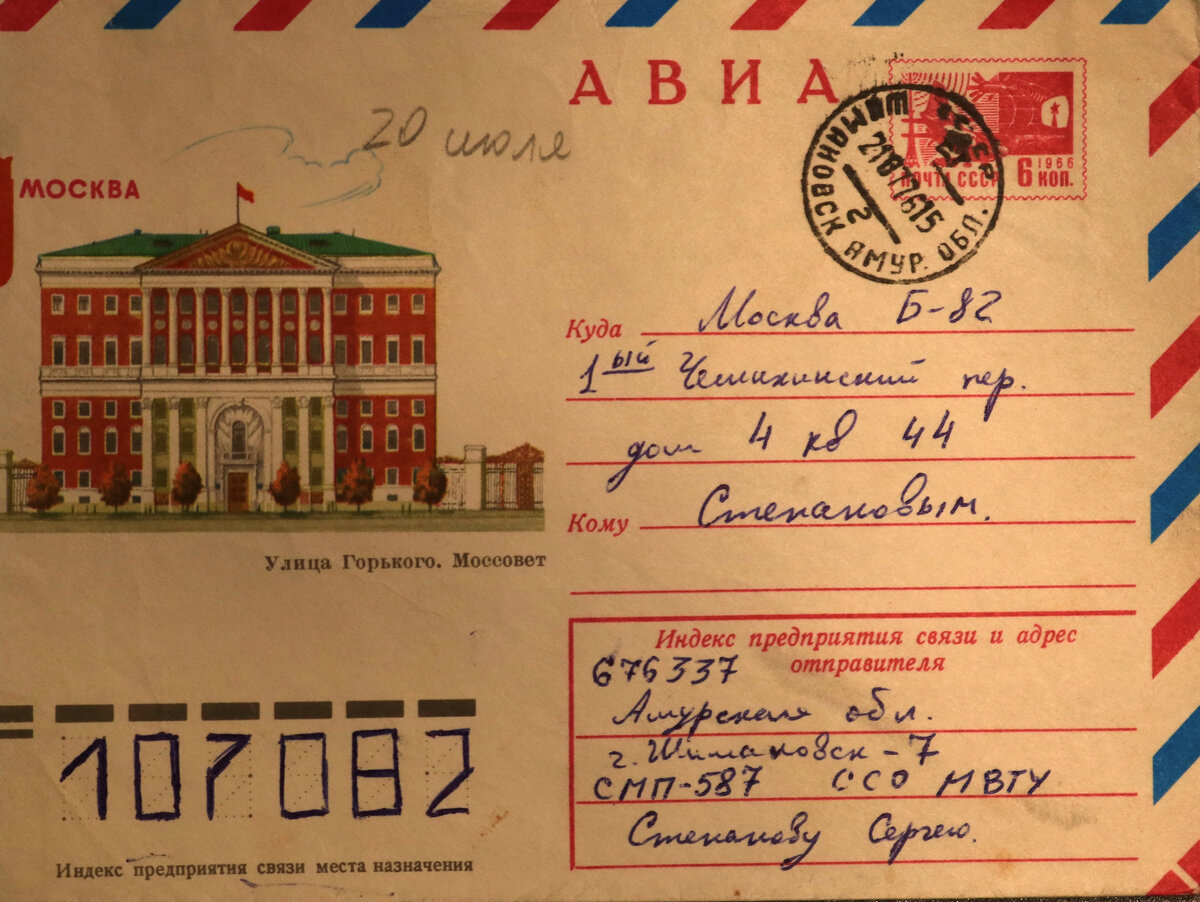 АВИА
20 июля
МОСКВА
ПОЧТА СССР
1966
6 КОП.
ШИМАНОВСК АМУР. ОБЛ.
2
Куда Москва Б-82
1ый Чешихинский пер.
дом 4 кв 44
Кому Степановым.
Улица Горького. Моссовет
Индекс предприятия связи и адрес
отправителя
676337
Амурская обл.
г. Шимановск-7
СМП-587 ССО МВТУ
Степанову Сергею.
107082
Индекс предприятия связи места назначения